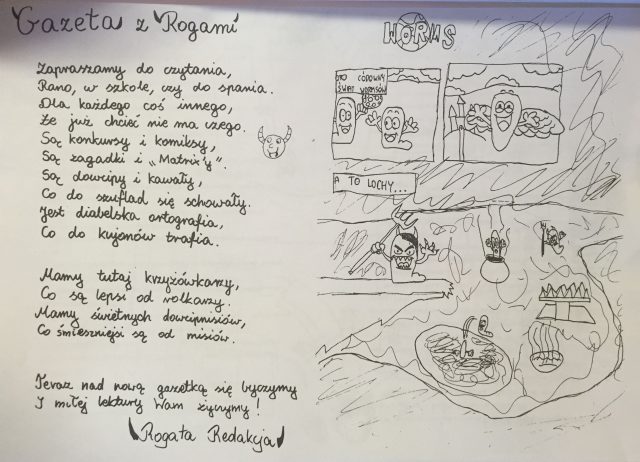 Gazeta z Rogami
Zapraszamy do czytania,
Rano, w szkole, czy do spania.
Dla każdego coś innego,
Że już chcieć nie ma czego.
Są konkursy i komiksy,
Są zagadki i „Matrixy”.
Są dowcipy i kawały,
Co do szuflad się schowały.
Jest diabelska ortografia,
Co do kujonów trafia.
Mamy tutaj krzyżówkarzy,
Co są lepsi od wolkarzy.
Mamy świetnych dowcipnisiów,
Co śmieszniejsi są od misiów.
Teraz nad nową gazetką się byczymy
I miłej lektury Wam życzymy!
Rogata Redakcja
WORMS
CUDOWNY
ŚWIAT WORMSÓW
A TO LOCHY...